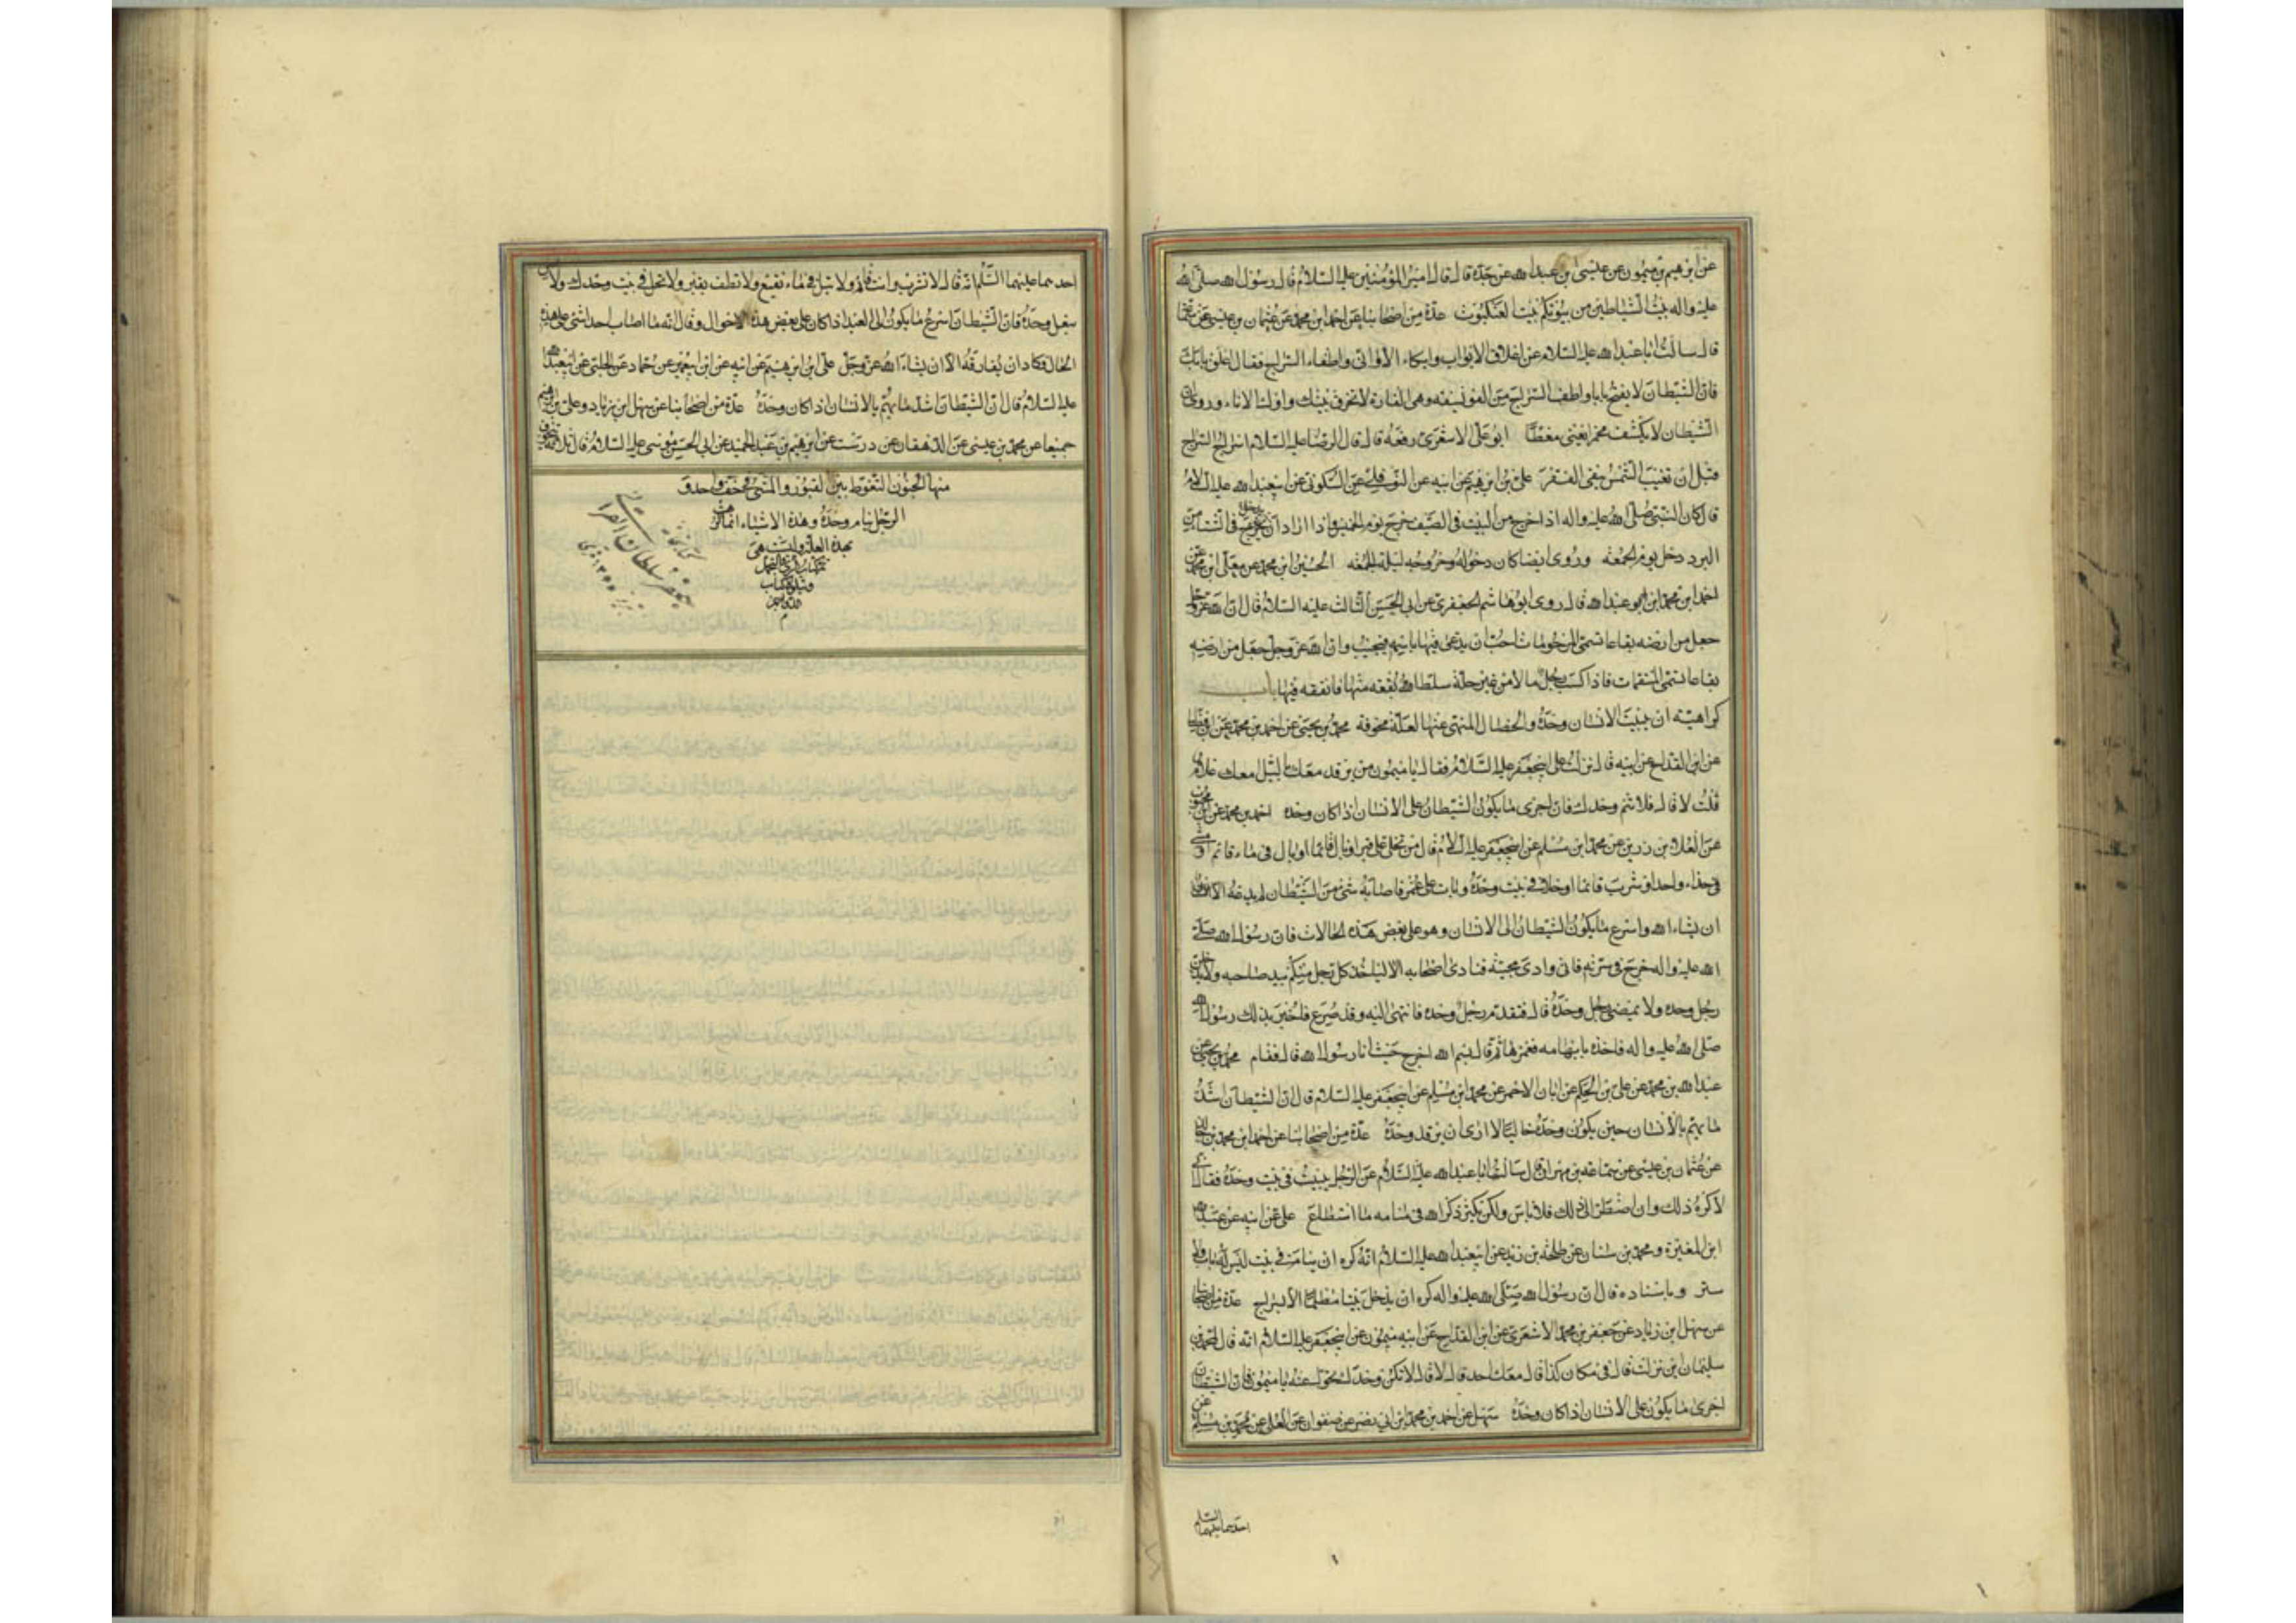 عن ابرهيم بن ميمون عن عيسى بن عبدالله عن جده قال قال اميرالمؤمنين عليه السلام قال رسول الله صلى الله
عليه واله بيت الشياطين من بيوتكم بيت العنكبوت عدة من اصحابنا عن احمد ابن محمد عن عثمان بن عيسى عن سماعة
قال سالت اباعبدالله عليه السلام عن اغلاق الابواب وايكاء الاوانى واطفاء السراج فقال اغلق بابك
فان الشيطان لا يفتح بابا واطف السراج من الفويسقه وهى الفارة لا تحرق بيتك واوك الاناء وروى ان
الشيطان لا يكشف مخمرا يعنى مغطا ابو على الاشعرى رفعه قال قال الرضا عليه السلام اسراج السراج
قبل ان تغيب الشمس ينفى الفقر على بن ابرهيم عن ابيه عن النوفلى عن السكونى عن ابيعبدالله عليه السلام
قال كان النبى صلى الله عليه واله اذا خرج من البيت فى الصيف خرج يوم الخميس واذا اراد ان يدخل فى الشتاء من
البرد دخل يوم الجمعه وروى ايضا كان دخوله وخروجه ليلة الجمعه الحسين ابن محمد عن معلى ابن محمد عن
احمد ابن محمد ابن عبدالله قال روى ابوهاشم الجعفرى عن ابى الحسن الثالث عليه السلام قال ان الله عز وجل
جعل من ارضه بقاعا تسمى المرحومات احب ان يدعى فيها باسمه فيجيب وان الله عز وجل جعل من ارضه
بقاعا تسمى المنتقمات فاذا كسب رجل مالا من غير حله سلط الله بقعه منها فانفقه فيها باب
كراهية ان يبيت الانسان وحده والخصال المنهى عنها لعلة مخوفة محمد بن يحيى عن احمد بن محمد عن ابن فضال
عن ابن القداح عن ابيه قال نزلت على ابيجعفر عليه السلام فقال يا ميمون من يرقد معك بالليل معك غلام
قلت لا قال فلا تنم وحدك فان اجرى ما يكون الشيطان على الانسان اذا كان وحده احمد بن محمد عن ابن محبوب
عن العلا بن رزين عن محمد ابن مسلم عن ابيجعفر عليه السلام قال من تخلى على قبر او بال قائما او بال فى ماء قائم او مشى
فى حذاء واحد او شرب قائما او خلا فى بيت وحده وبات على غمر فاصابه شئ من الشيطان لم يدعه الا
ان يشاء الله واسرع ما يكون الشيطان الى الانسان وهو على بعض هذه الحالات فان رسول الله صلى
الله عليه واله خرج فى سريه فاتى وادى مجنه فنادى اصحابه الا لياخذ كل رجل منكم بيد صاحبه ولا يدخلن
رجل وحده ولا يمضى رجل وحده قال فتقدم رجل وحده فانتهى اليه وقد صرع فاخبر بذلك رسول الله
صلى الله عليه واله فاخذ بابهامه فغمزها ثم قال بسم الله اخرج خبيث انا رسول الله قال فقام محمد بن يحيى عن
عبدالله بن محمد عن على بن الحكم عن ابان الاحمر عن محمد ابن مسلم عن ابيجعفر عليه السلام قال ان الشيطان اشد
ما يهم بالانسان حين يكون وحده خاليا لا ارى ان يرقد وحده عدة من اصحابنا عن احمد ابن محمد بن خالد
عن عثمان بن عيسى عن سماعه بن مهران قال سالت اباعبدالله عليه السلام عن الرجل يبيت فى بيت وحده فقال انى
لاكره ذلك وان اضطر الى ذلك فلا باس ولكن يكثر ذكر الله فى منامه ما استطاع على عن ابيه عن عبدالله
ابن المغيرة ومحمد بن سنان عن طلحه بن زيد عن ابيعبدالله عليه السلام انه كره ان ينام فى بيت ليس له باب ولا
ستر وباسناده قال ان رسول الله صلى الله عليه واله كره ان يدخل بيتا مظلما الا بسراج عدة من اصحابنا
عن سهل ابن زياد عن جعفر بن محمد الاشعرى عن ابن القداح عن ابيه ميمون عن ابيجعفر عليه السلام انه قال لمحمد بن
سليمان اين نزلت قال فى مكان كذا قال معك احد قال لا قال لا تكن وحدك تحول عنه يا ميمون فان الشيطان
اجرى ما يكون على الانسان اذا كان وحده سهل عن احمد بن محمد ابن ابى نصر عن صفوان عن العلا عن محمد بن مسلم عن
احدهما عليهما السلم
احدهما عليهما السلم انه قال لا تشرب وانت قائم ولا تبل فى ماء نقيع ولا تطف بقبر ولا تخل فى بيت وحدك ولا تمش
بنعل واحدة فان الشيطان اسرع ما يكون الى العبد اذا كان على بعض هذه الاحوال وقال انه ما اصاب احدا شئ على هذه
الحال فكاد ان يفارقه الا ان يشاء الله عز وجل على بن ابرهيم عن ابيه عن ابن ابيعمير عن حماد عن الحلبى عن ابيعبدالله
عليه السلام قال ان الشيطان اشد ما يهم بالانسان اذا كان وحده عدة من اصحابنا عن سهل ابن زياد وعلى بن ابرهيم
جميعا عن محمد بن عيسى عن الدهقان عن درست عن ابرهيم بن عبدالحميد عن ابى الحسن موسى عليه السلام قال ثلاثة يتخوف
منها الجنون التغوط بين القبور والمشى فى خف واحد و
الرجل ينام وحده وهذه الاشياء انما كرهت
بهذه العلة وليست هى
بحرام